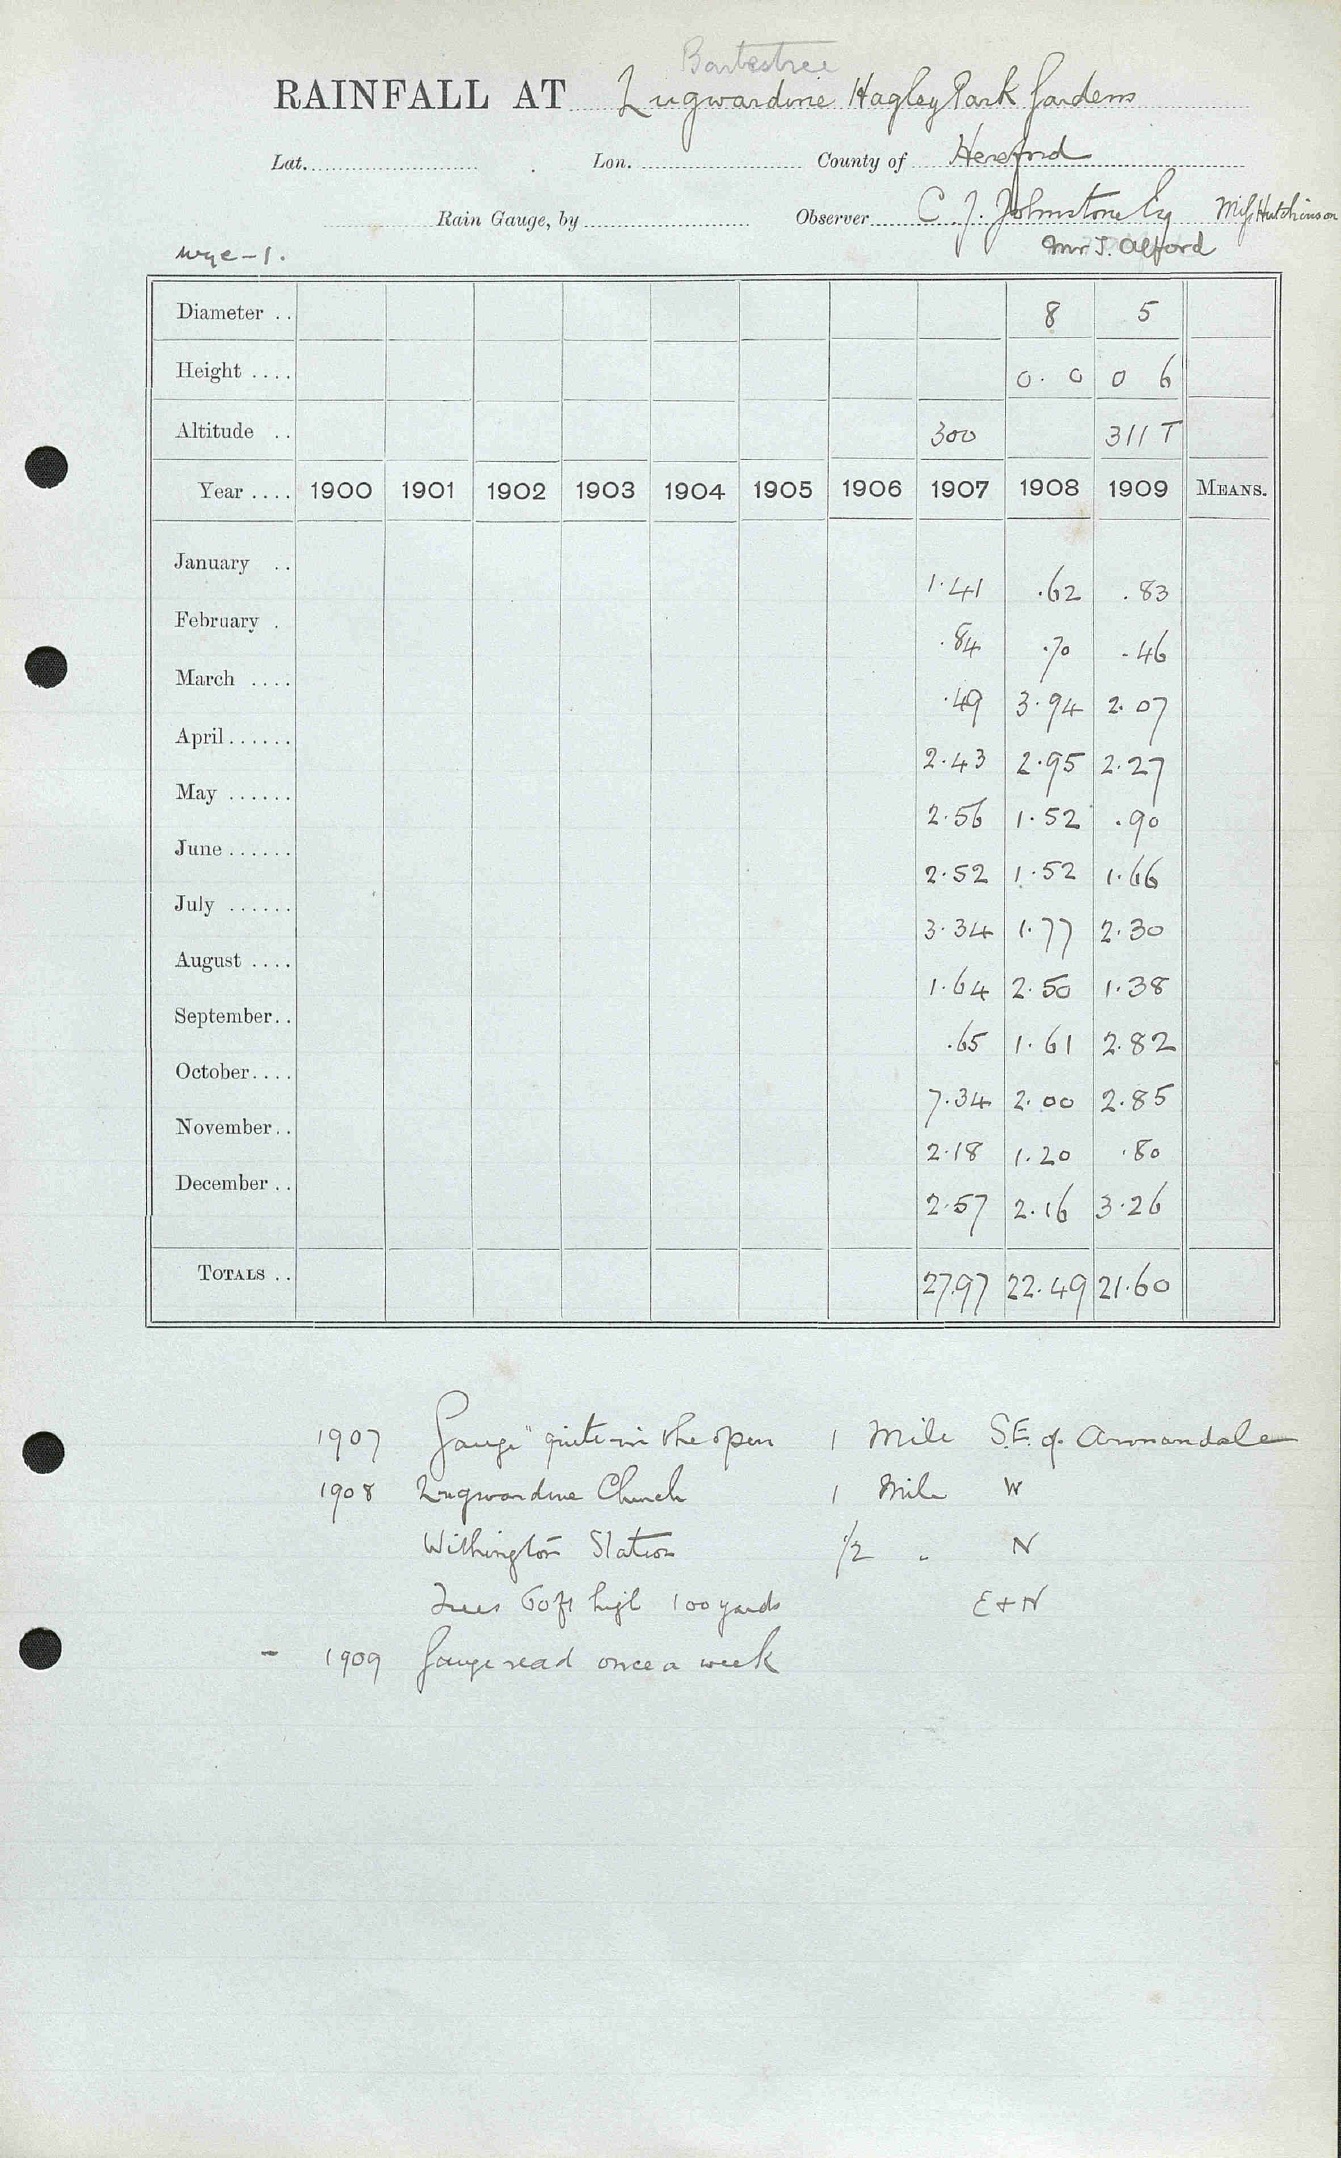 Bartestree
RAINFALL AT Lugwardine Hagley Park Gardens
Lat. Lon. County of Hereford
Rain Gauge, by Observer C. J. Johnstone Esq Miss Hutchinson
Wye - 1. Mr J. Alford
Diameter .. 8 5
Height .... 0. 0 0 6
Altitude .. 300 311 T
Year .... 1900 1901 1902 1903 1904 1905 1906 1907 1908 1909 MEANS.
January .. 1.41 .62 .83
February . .84 .70 .46
March .... .49 3.94 2.07
April ...... 2.43 2.95 2.27
May ...... 2.56 1.52 .90
June ...... 2.52 1.52 1.66
July ...... 3.34 1.77 2.30
August .... 1.64 2.50 1.38
September.. .65 1.61 2.82
October.... 7.34 2.00 2.85
November.. 2.18 1.20 .80
December .. 2.57 2.16 3.26
TOTALS .. 27.97 22.49 21.60
1907 Gauge "quite in the open 1 Mile S.E. of Annandale
1908 Lugwardine Church 1 Mile W
Withington Station 1/2 " N
Trees 60 ft high 100 yards E + N
- 1909 Gauge read once a week